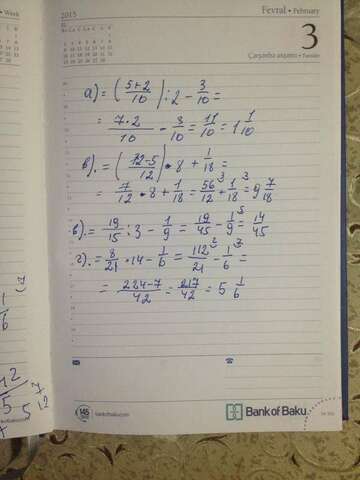 Week
2015
Fevral • February
3
Çərşənbə axşamı • Tuesday
а) = (5+2/10) : 2 - 3/10 =
= 7·2/10 - 3/10 = 11/10 = 1 1/10
в). = (12-5/12) • 8 + 1/18 =
= 7/12 • 8 + 1/18 = 56/12 + 1/18 = 9 7/18
в). = 19/15 : 3 - 1/9 = 19/45 - 1/9 = 14/45
г). = 8/21 · 14 - 1/6 = 112/21 - 1/6 =
= 224-7/42 = 217/42 = 5 1/6
145
bankofbaku.com
Bank of Baku